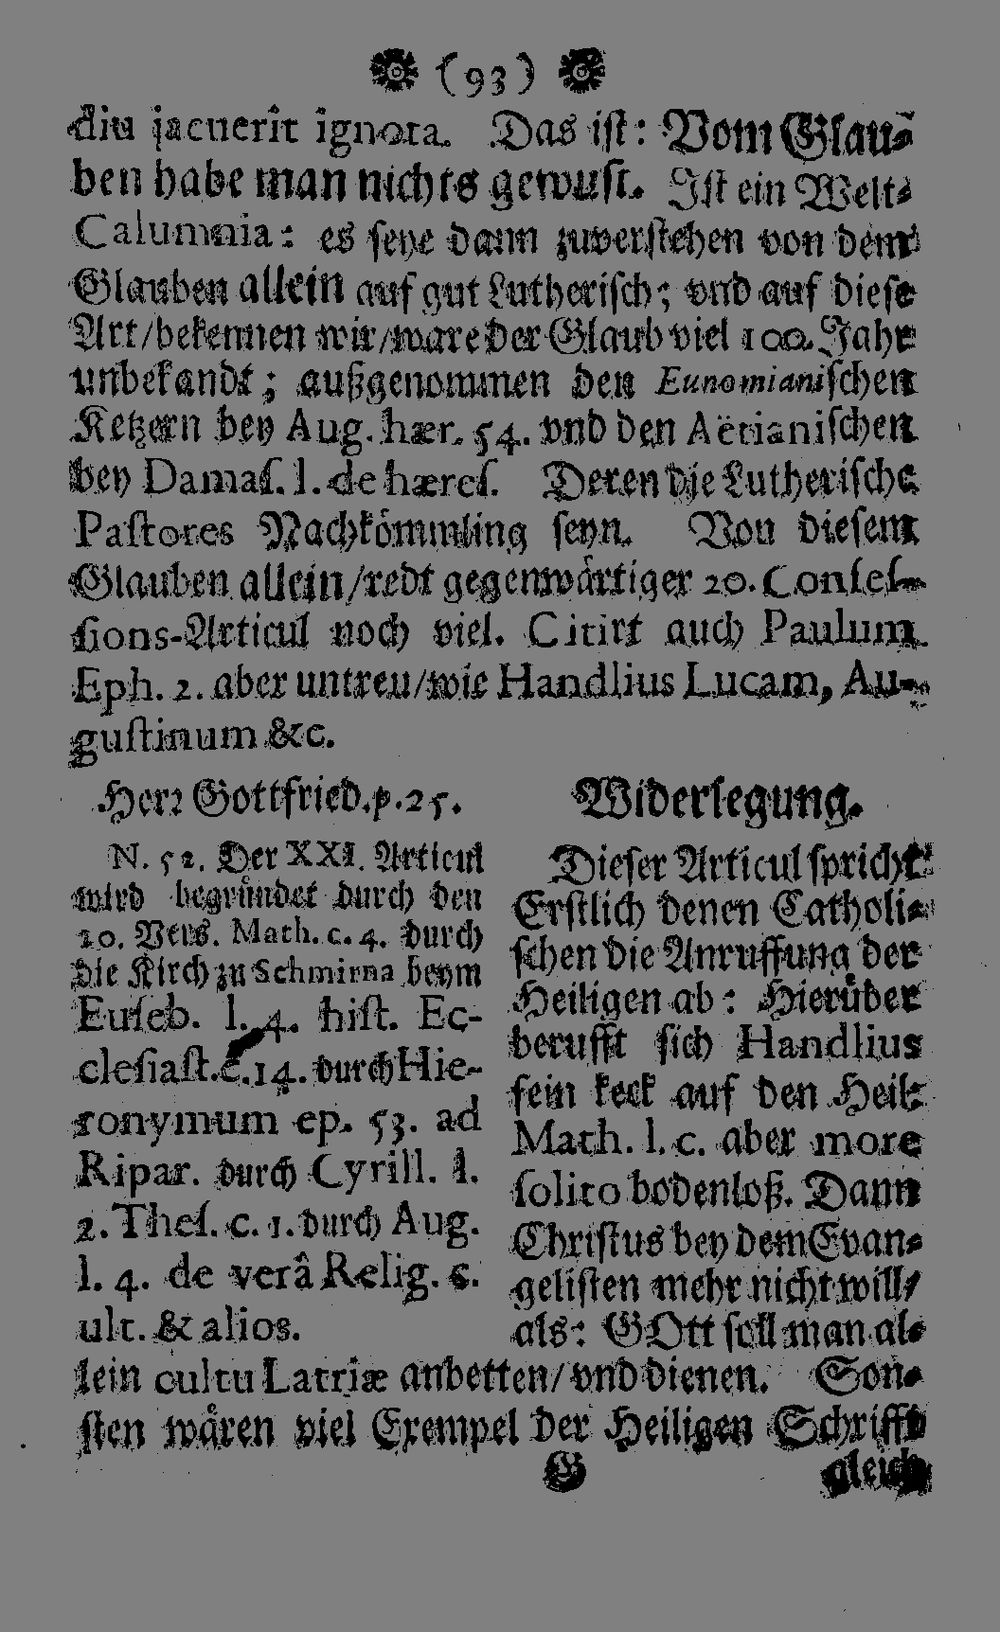 (93)
diu jacuerit ignota. Das ist: Vom Glau-
ben habe man nichts gewust. Ist ein Welt-
Calumnia: es seye dann zuverstehen von dem
Glauben allein auf gut Lutherisch; vnd auf diese
Art/bekennen wir/ware der Glaub viel 100. Jahr
unbekandt; außgenommen den Eunomianischen
Ketzern bey Aug. hær. 54. vnd den Aërianischen
bey Damas. l. de hæres. Deren die Lutherische
Pastores Nachkömmling seyn. Von diesem
Glauben allein/redt gegenwärtiger 20. Confes-
sions-Articul noch viel. Citirt auch Paulum
Eph. 2. aber untreu/wie Handlius Lucam, Au-
gustinum &c.
Herr Gottfried. p. 25.
N. 52. Der XXI. Articul
wird begründet durch den
10. Vers. Math. c. 4. durch
die Kirch zu Schmirna beym
Euseb. l. 4. hist. Ec-
clesiast. c. 14. durch Hie-
ronymum ep. 53. ad
Ripar. durch Cyrill. l.
2. Thes. c. 1. durch Aug.
l. 4. de verâ Relig. c.
ult. & alios.
Widerlegung.
Dieser Articul spricht
Erstlich denen Catholi-
schen die Anruffung der
Heiligen ab: Hierüber
berufft sich Handlius
fein keck auf den Heil:
Math. l. c. aber more
solito bodenloß. Dann
Christus bey dem Evan-
gelisten mehr nicht will/
als: GOtt soll man al-
lein cultu Latriæ anbetten/vnd dienen. Son-
sten wären viel Exempel der Heiligen Schrifft
G gleich